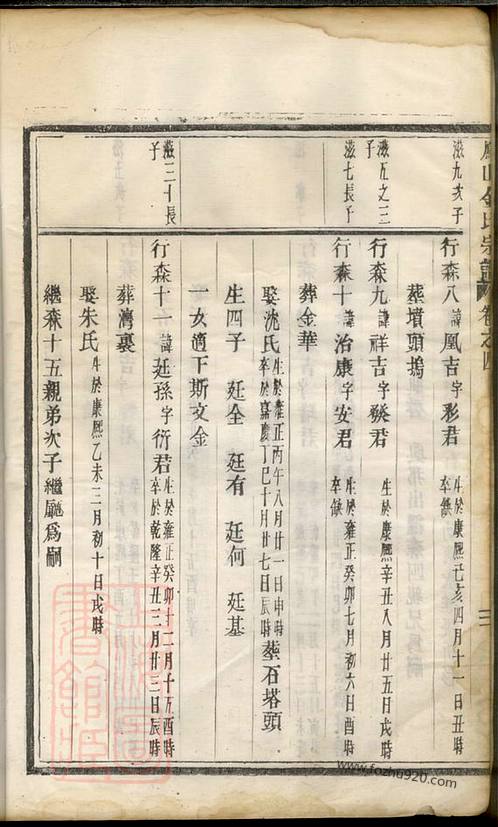 山 氏宗譜 卷之四
滋九次子
行森八 諱鳳吉字彩君 生於康熙己亥四月十一日丑時
卒缺
葬墳頭塢
滋五之三子
行森九 諱祥吉字發君 生於康熙辛丑八月廿五日戌時
滋七長子
行森十 諱治康字安君 生於雍正癸卯七月初六日酉時
卒缺
葬金華
娶沈氏 生於雍正丙午八月廿一日申時
卒於嘉慶丁巳十月廿七日辰時 葬石塔頭
生四子 廷全 廷有 廷何 廷基
一女適下斯文金
滋三十長子
行森十一 諱廷孫字衍君 生於雍正癸卯十二月十五酉時
卒於乾隆辛丑三月廿三日辰時
葬灣裏
娶朱氏 生於康熙乙未二月初十日戌時
繼森十五親弟次子繼廳為嗣
www.fozhu920.com